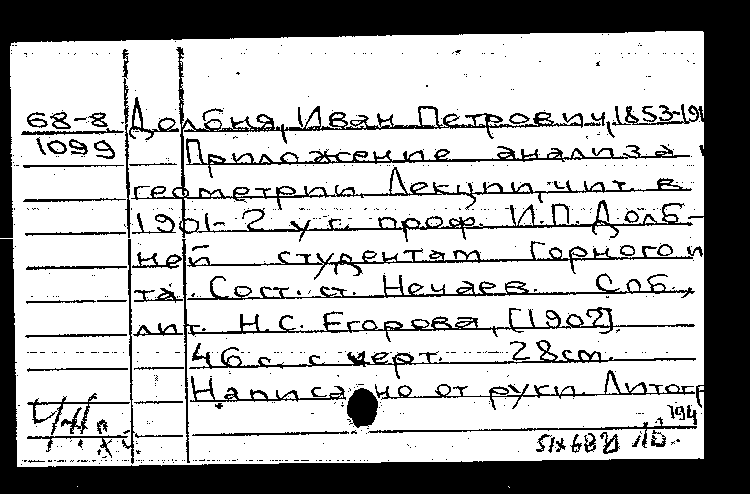 68-8 Долбня, Иван Петрович, 1853-191
1099 Приложение анализа
геометрии. Лекции, чит. в
1901-2 у.г. проф. И.П. Долб-
ней студентам Горного и
та. Сост. ст. Нечаев. Спб.,
лит. Н.С. Егорова, [1902].
46 с. с черт. 28 cm.
Написано от руки. Литогр
194